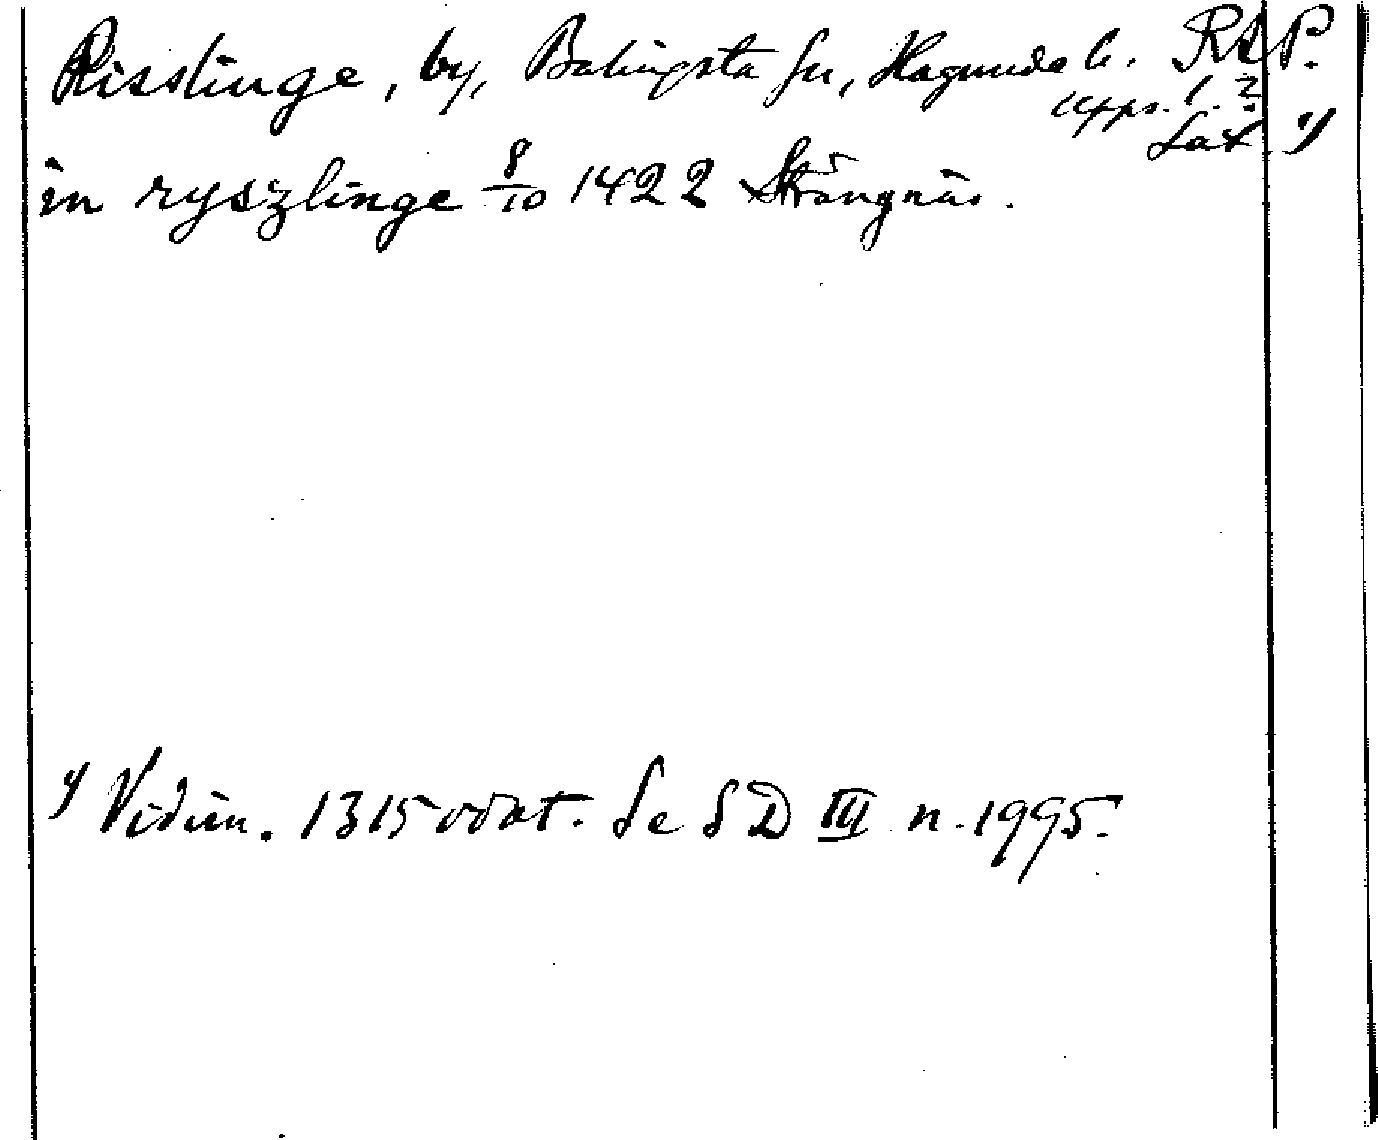 Risslinge, by, Balingsta sn, Hagunda h. RAP.
Upps. l. ?
Lat. 1)
in ryszlinge 8/10 1422 Strängnäs.
1) Vidim. 1315 odat. Se SD III n. 1995.